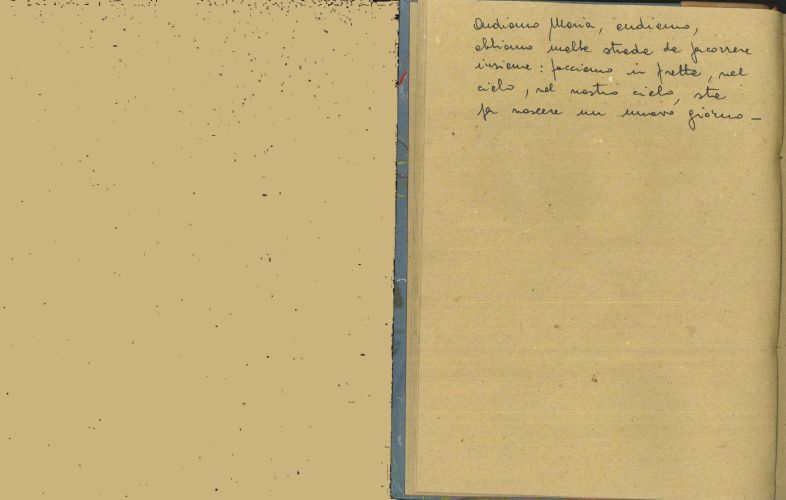 Andiamo Maria, andiamo,
abbiamo molte strade da percorrere
insieme: facciamo in fretta, nel
cielo, nel nostro cielo, sta
per nascere un nuovo giorno_